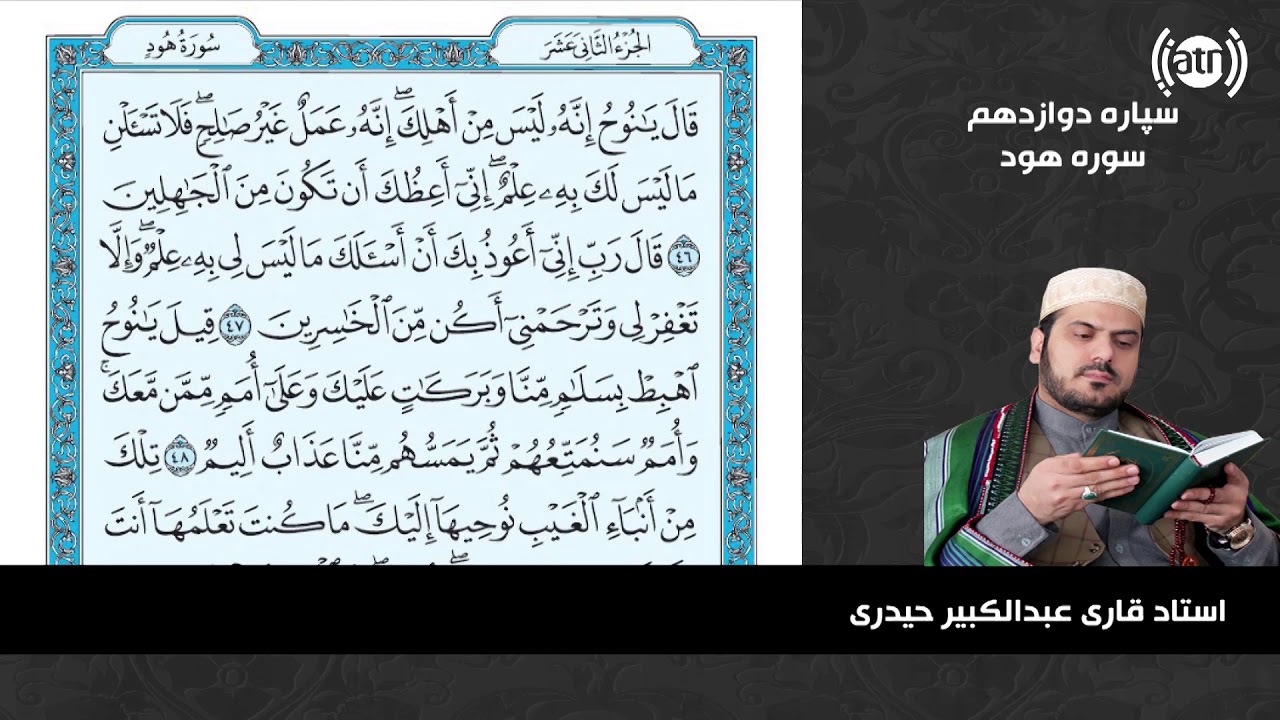 الجُزْءُ الثَّانِىَ عَشَرَ
سُورَةُ هُودٍ
قَالَ يَـٰنُوحُ إِنَّهُۥ لَيْسَ مِنْ أَهْلِكَ ۖ إِنَّهُۥ عَمَلٌ غَيْرُ صَـٰلِحٍ ۖ فَلَا تَسْـَٔلْنِ
مَا لَيْسَ لَكَ بِهِۦ عِلْمٌ ۖ إِنِّىٓ أَعِظُكَ أَن تَكُونَ مِنَ ٱلْجَـٰهِلِينَ
٤٦ قَالَ رَبِّ إِنِّىٓ أَعُوذُ بِكَ أَنْ أَسْـَٔلَكَ مَا لَيْسَ لِى بِهِۦ عِلْمٌ ۖ وَإِلَّا
تَغْفِرْ لِى وَتَرْحَمْنِىٓ أَكُن مِّنَ ٱلْخَـٰسِرِينَ ٤٧ قِيلَ يَـٰنُوحُ
ٱهْبِطْ بِسَلَـٰمٍ مِّنَّا وَبَرَكَـٰتٍ عَلَيْكَ وَعَلَىٰٓ أُمَمٍ مِّمَّن مَّعَكَ ۚ
وَأُمَمٌ سَنُمَتِّعُهُمْ ثُمَّ يَمَسُّهُم مِّنَّا عَذَابٌ أَلِيمٌ ٤٨ تِلْكَ
مِنْ أَنۢبَآءِ ٱلْغَيْبِ نُوحِيهَآ إِلَيْكَ ۖ مَا كُنتَ تَعْلَمُهَآ أَنتَ
atn
سپاره دوازدهم
سوره هود
استاد قاری عبدالکبیر حیدری